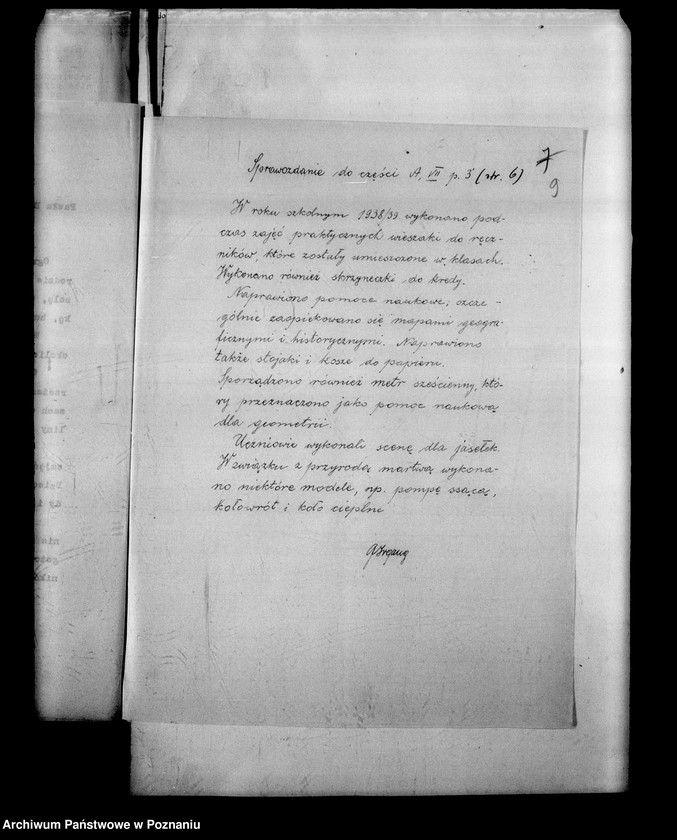 Sprawozdanie do części A, VII p. 3 (str. 6)
7
9
W roku szkolnym 1938/39 wykonano pod-
czas zajęć praktycznych wieszaki do ręcz-
ników, które zostały umieszczone w klasach.
Wykonano również skrzyneczki do kredy.
Naprawiono pomoce naukowe; szcze-
gólnie zaopiekowano się mapami geogra-
ficznymi i historycznymi. Naprawiono
także stojaki i kosze do papieru.
Sporządzono również metr sześcienny, któ-
ry przeznaczono jako pomoc naukową
dla geometrii.
Uczniowie wykonali scenę dla jasełek.
W związku z przyrodą martwą wykona-
no niektóre modele, np. pompę ssącą,
kołowrót i koło cieplne
Archiwum Państwowe w Poznaniu